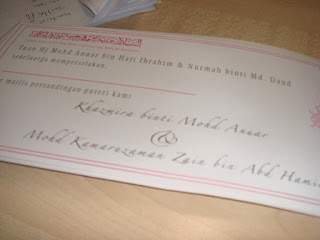 Tuan Hj Mohd Anuar bin Haji Ibrahim & Nurmah binti Md. Daud
sekeluarga mempersilakan
majlis persandingan puteri kami
Khazmira binti Mohd Anuar
&
Mohd Kamaruzaman Zein bin Abd Hami